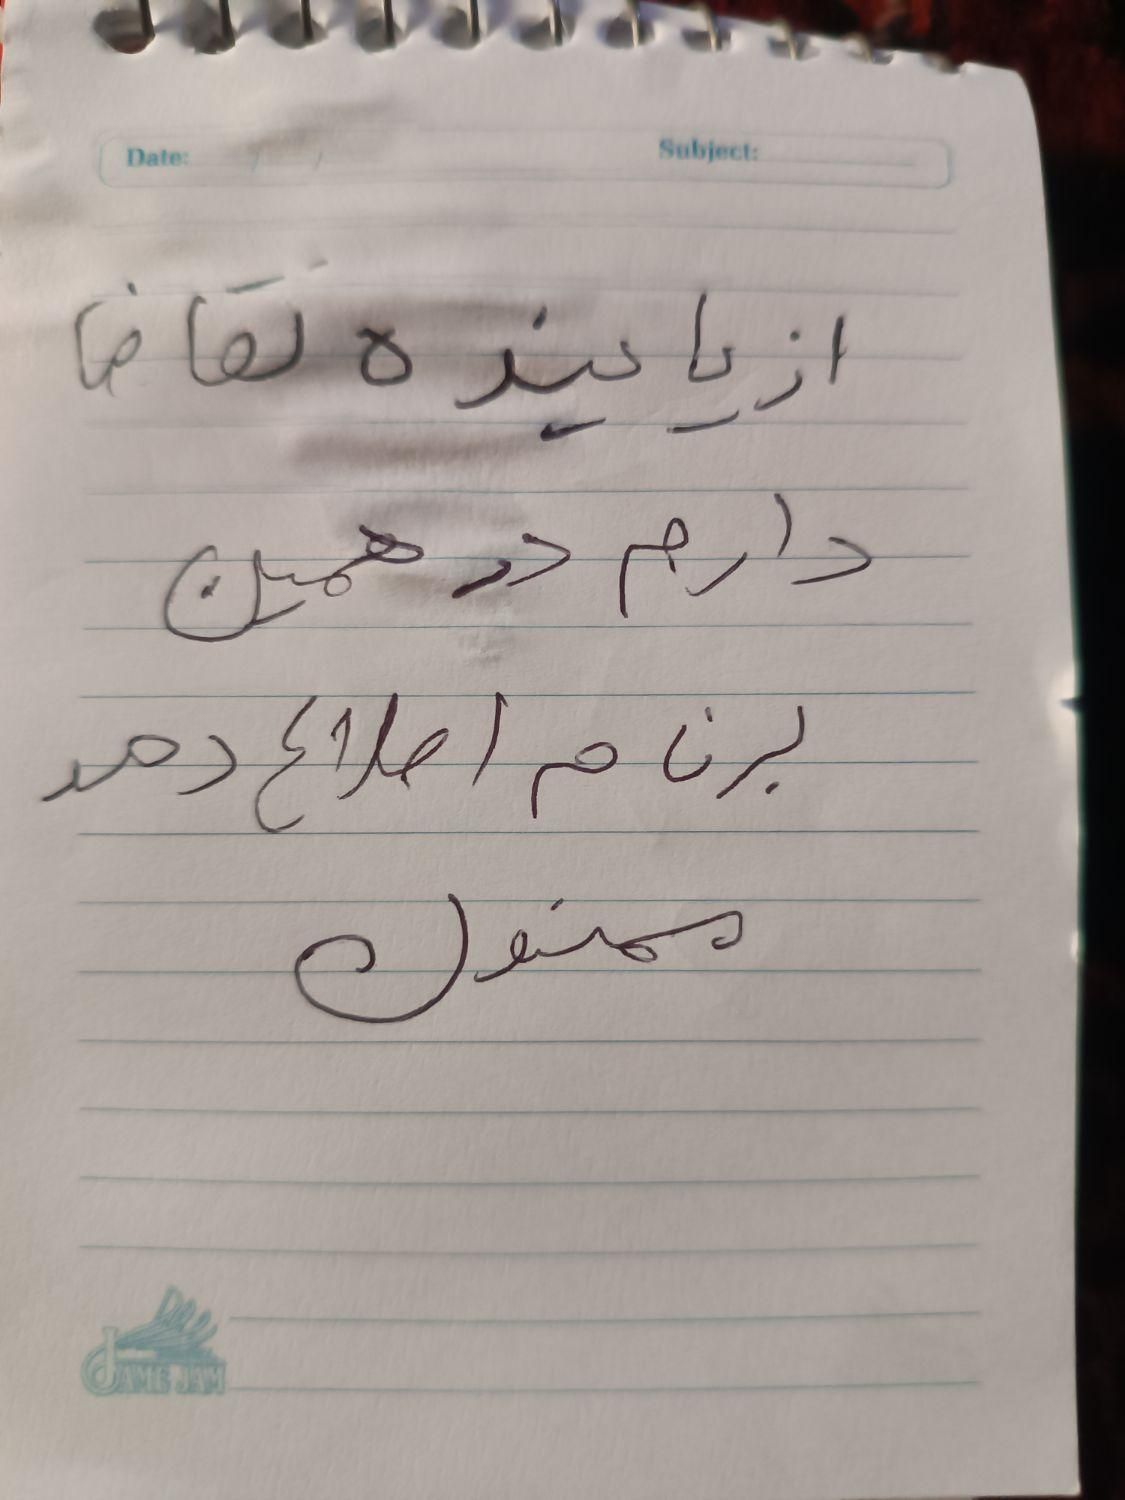 Date: / /
Subject:
از یابنده تقاضا
دارم در همین
برنام اطلاع دهد
ممنون
JAME JAM